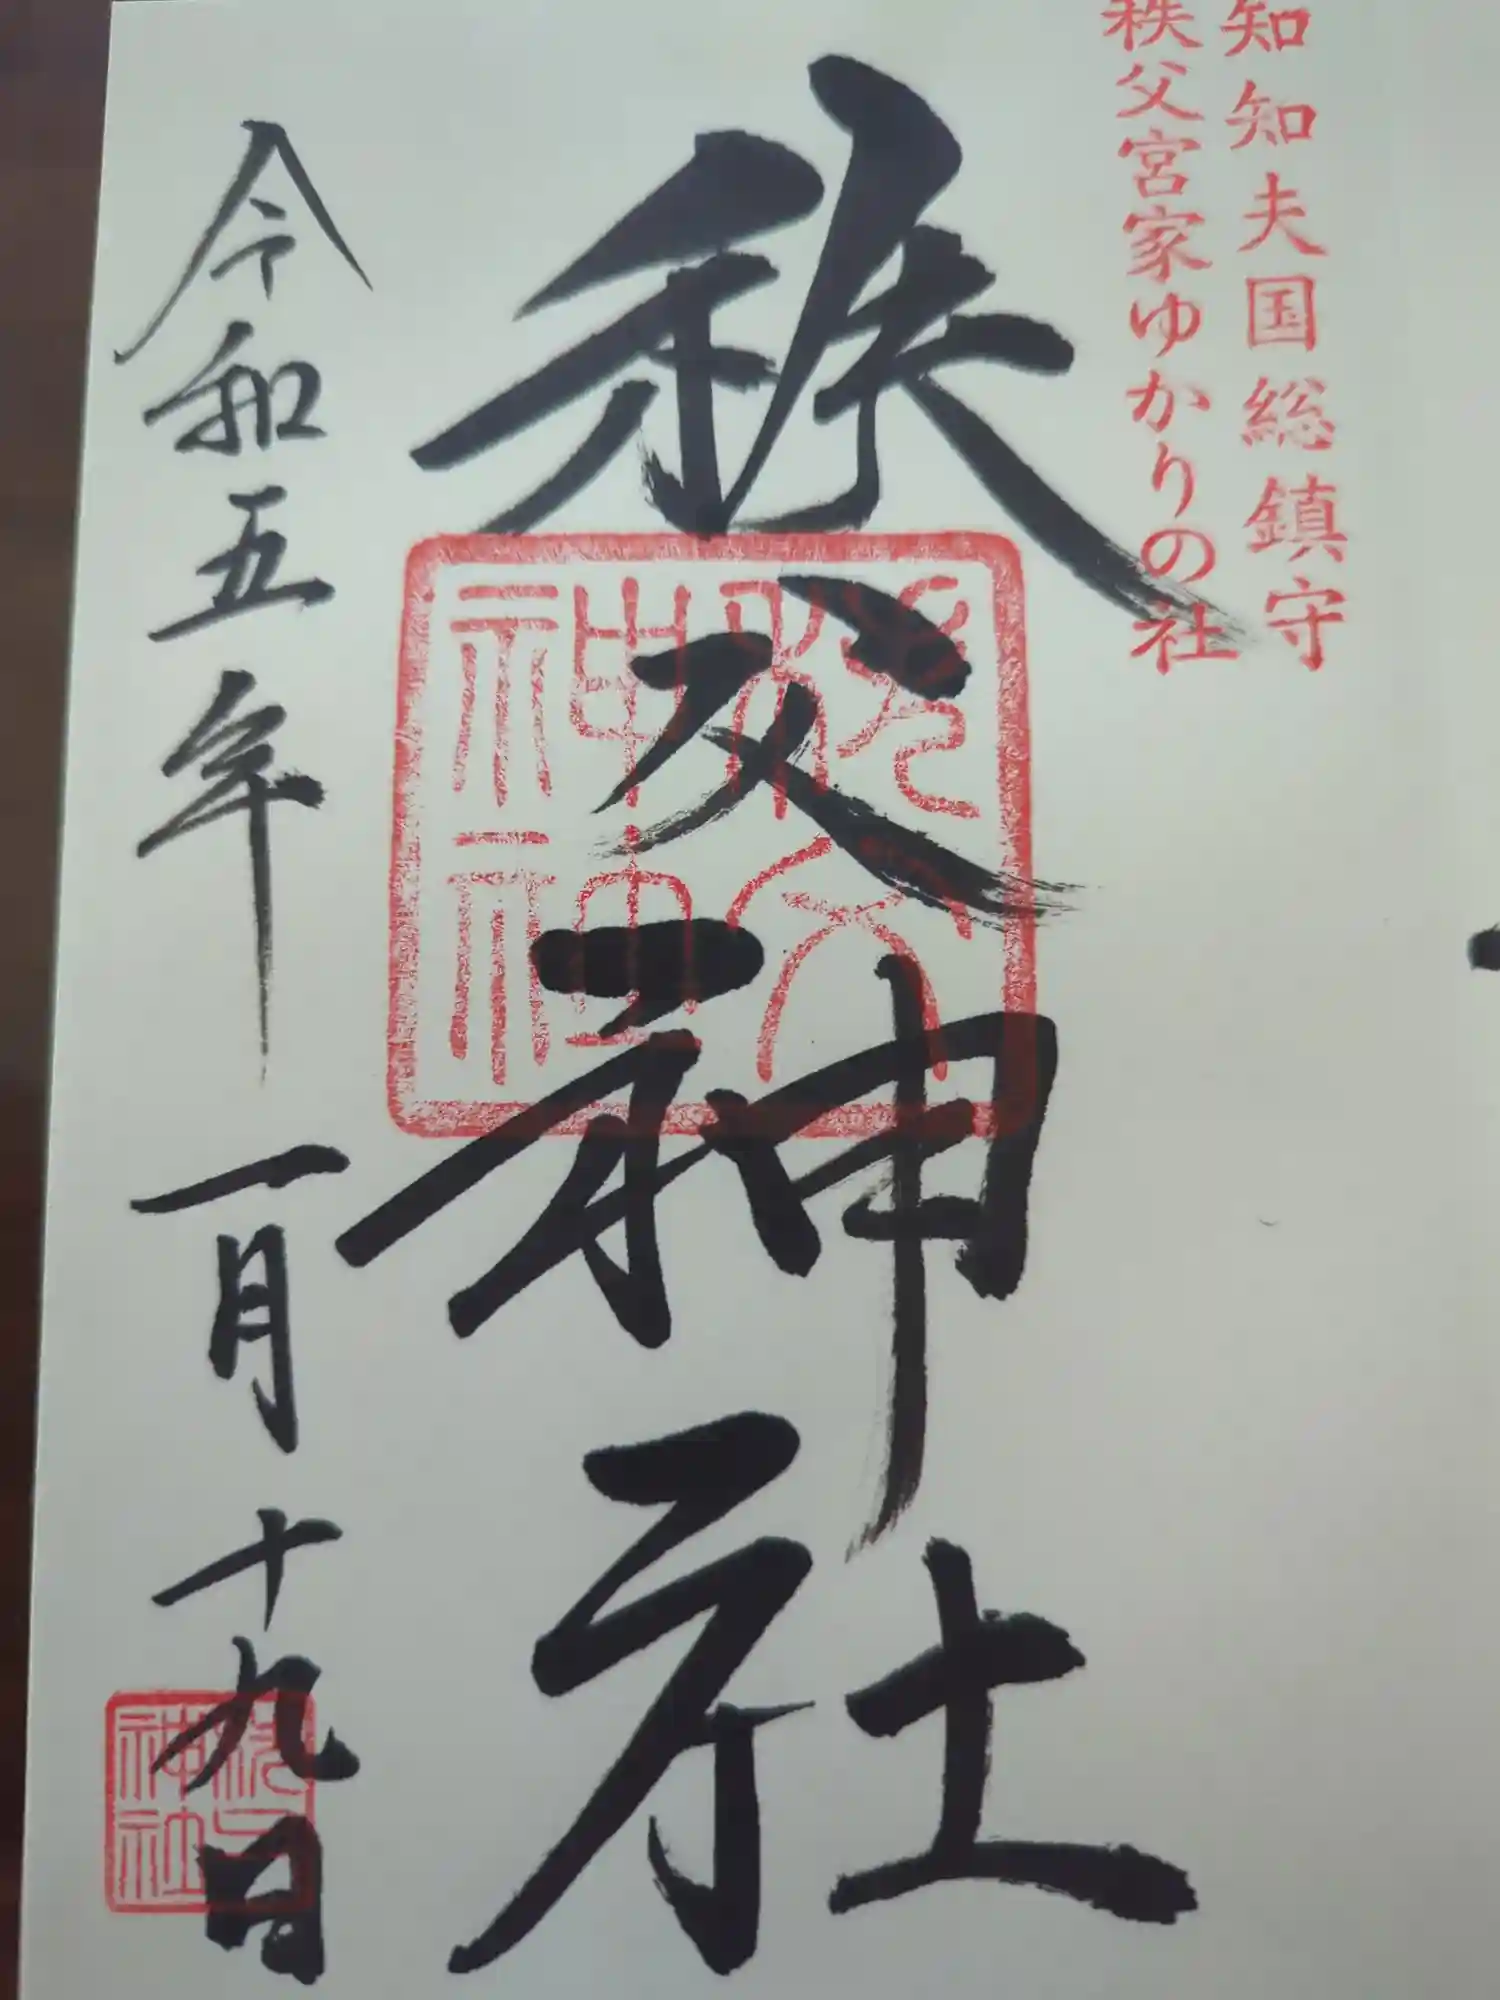 知知夫国総鎮守
秩父宮家ゆかりの社
秩父神社
秩父
神社
令和五年 一月十九日
神社